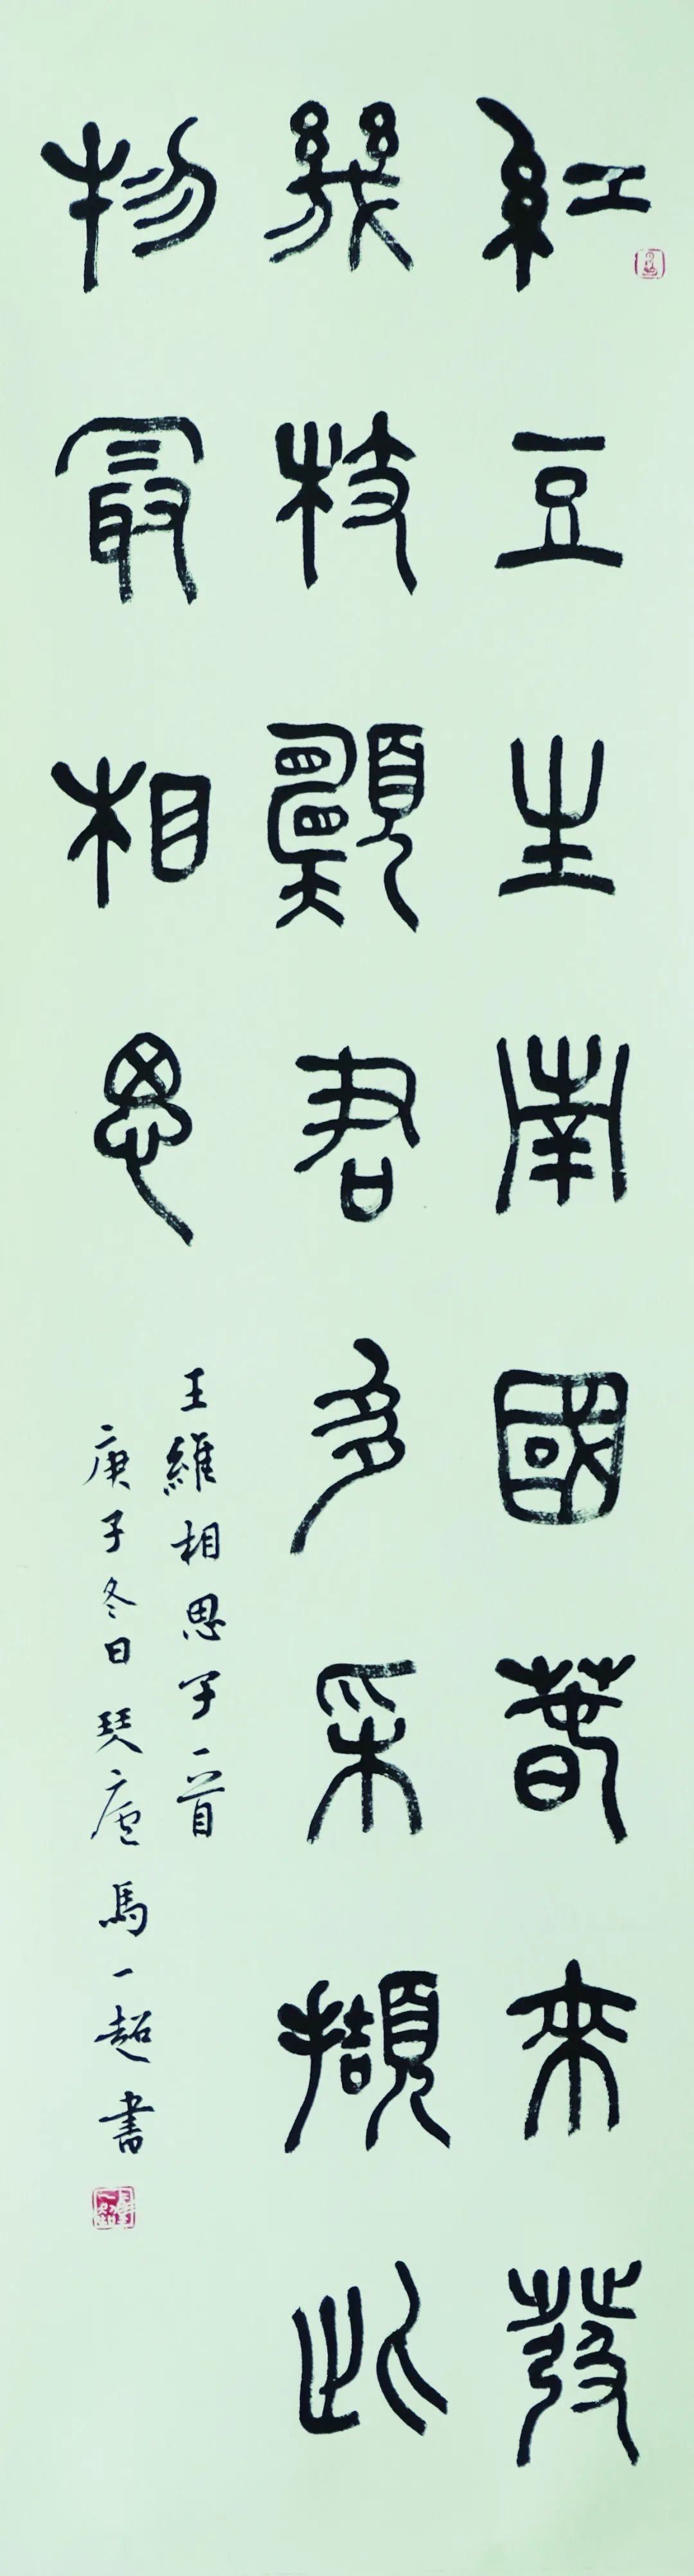 紅豆生南國春來發
幾枝願君多采擷此
物最相思
王維相思子一首
庚子冬日琴廬馬一超書